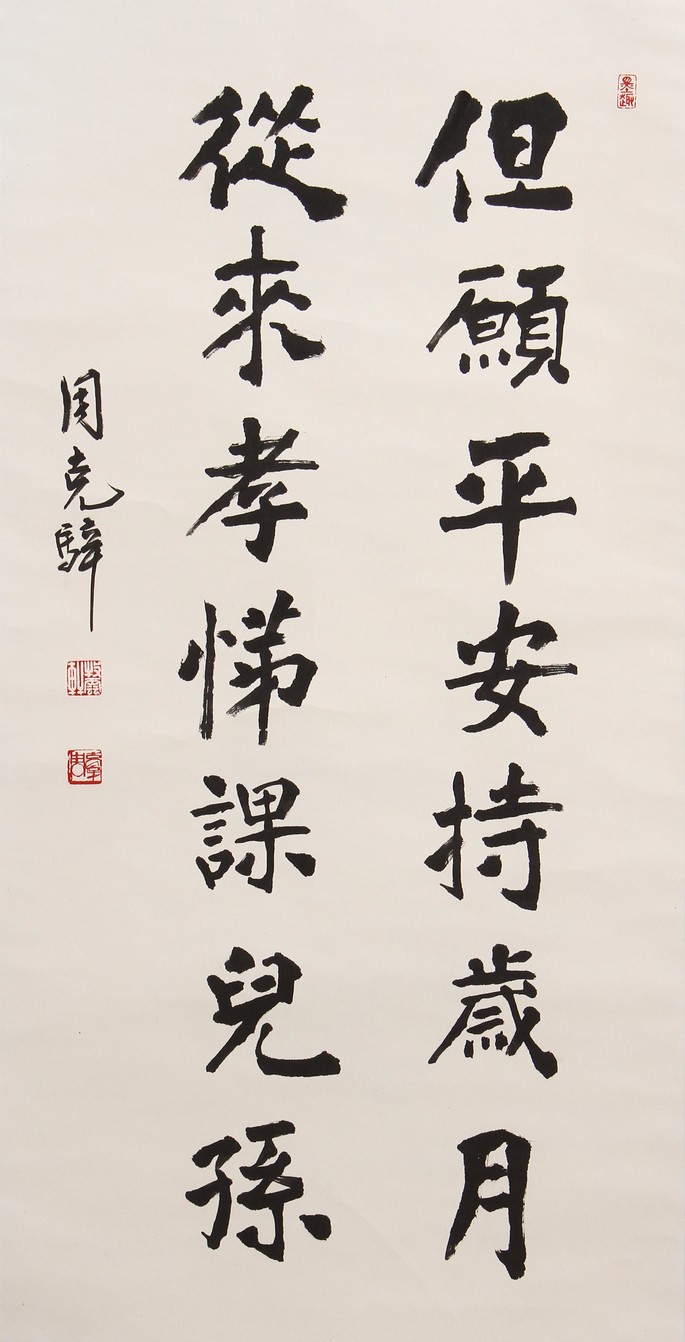 但願平安持歲月
從來孝悌課兒孫
周克騂